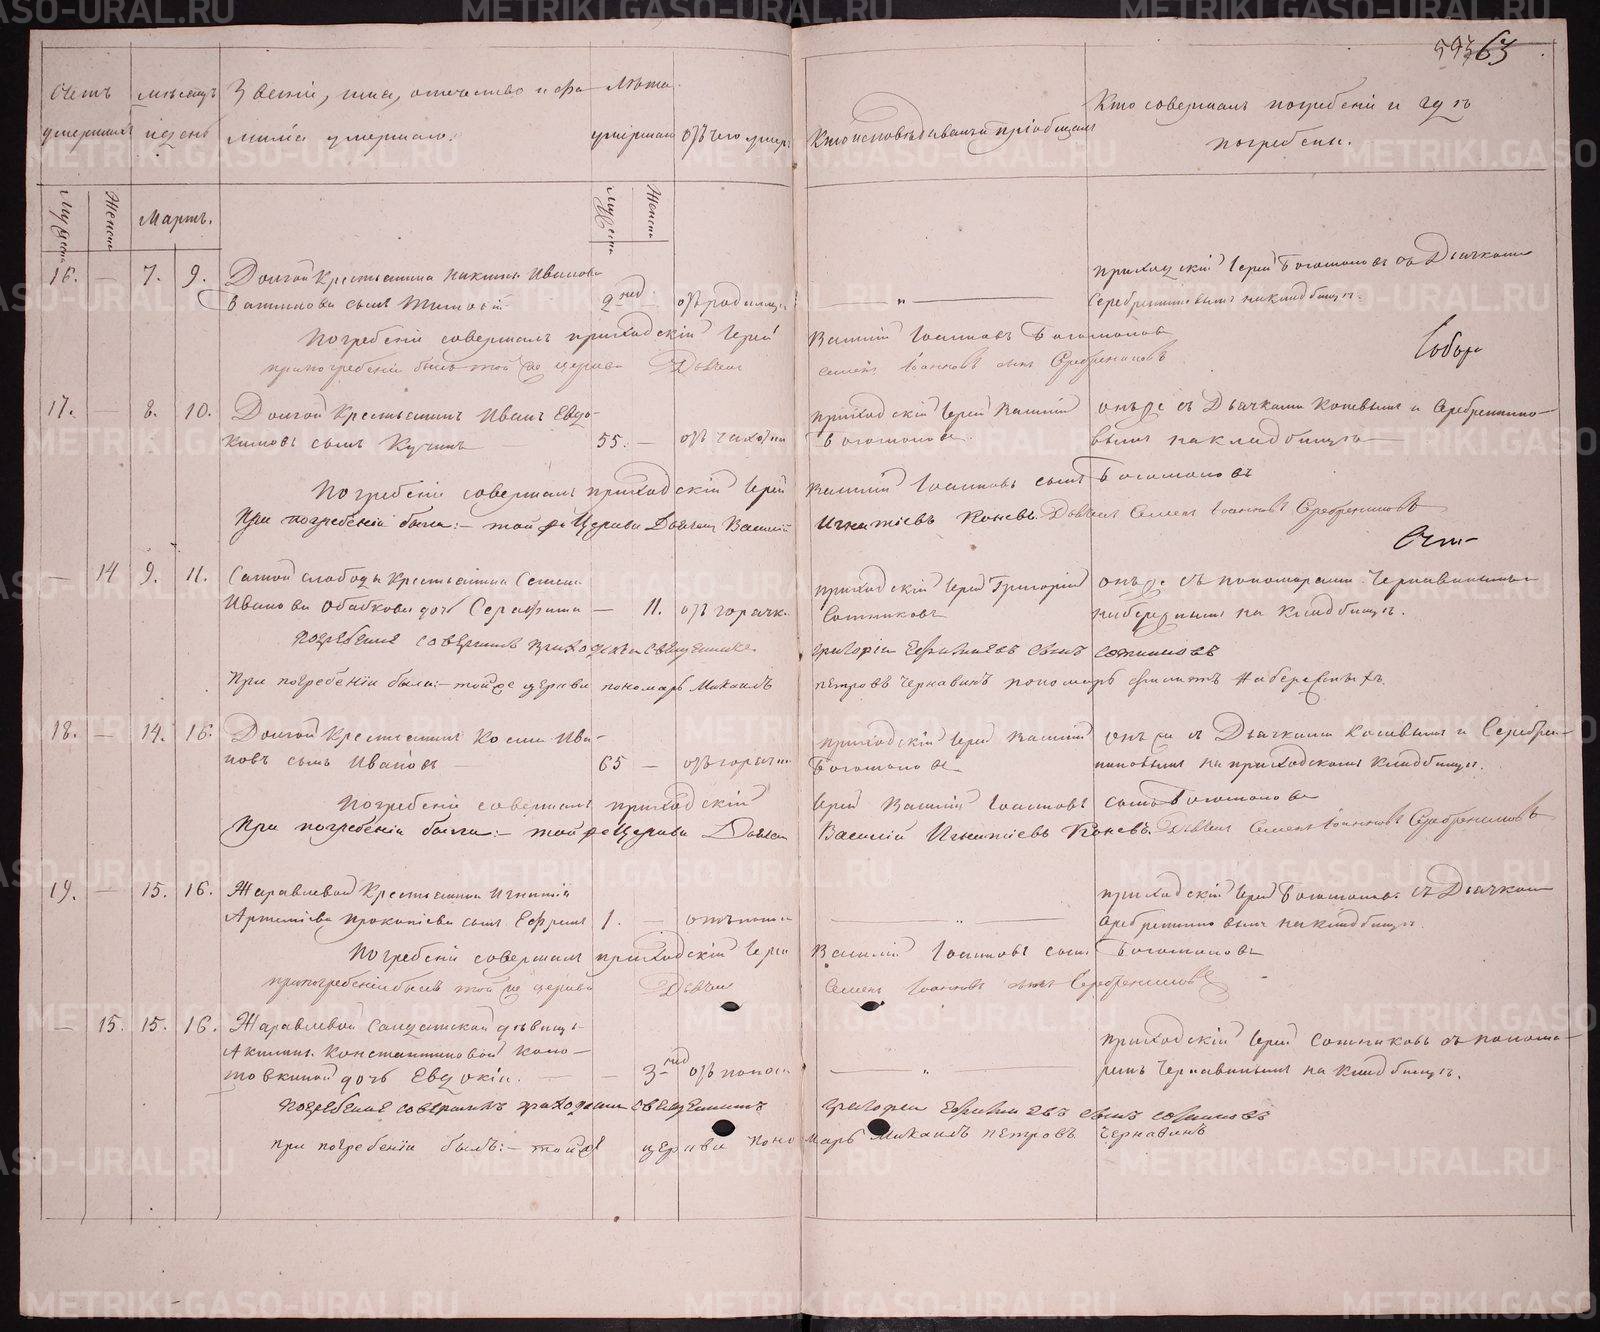 593 63
Счетъ умершихъ
мѣсяцъ и день
Званіе, имя, отчество и фамилія умершаго.
Лѣта умершаго
отъ чего умеръ
Кто исповѣдывалъ и пріобщалъ
Кто совершалъ погребеніе и гдѣ погребены.
Мужеска Женска
Мартъ.
Мужеска Женска
16. — 7. 9. Долгой крестьянина Никиты Иванова
сынъ Тимоѳей 2 нед отъ родимца — „ —
приходскій Іерей Богомоловъ съ Дьячкомъ
Серебренниковымъ на кладбищѣ.
Погребеніе совершалъ приходскій Іерей Василій Іоанновъ Богомоловъ
при погребеніи былъ той же церкви Дьячекъ Семенъ Іоанновъ сынъ Серебренниковъ
17. — 8. 10. Долгой крестьянинъ Иванъ Евдо-
кимовъ сынъ Кучинъ 55. — отъ чахотки
приходскій Іерей Василій Богомоловъ
онъ же съ Дьячками Коневымъ и Серебреннико-
вымъ на кладбищѣ
Погребеніе совершалъ приходскій Іерей Василій Іоанновъ сынъ Богомоловъ
При погребеніи были:— той же Церкви Дьячекъ Василій Игнатіевъ Коневъ. Дьячекъ Семенъ Іоанновъ Серебренниковъ
— 14 9. 11. Самой слободы крестьянина Семена
Иванова Обабкова дочь Серафима — 11. отъ горячк.
приходскій Іерей Григорій Сотниковъ
онъ же съ пономарями Чернавинымъ и
Набережнымъ на кладбищѣ.
Погребеніе совершалъ приходскій священникъ Григорій Ефиміевъ сынъ Сотниковъ
При погребеніи были:— той же церкви пономарь Михаилъ Петровъ Чернавинъ пономарь Набережныхъ.
18. — 14. 16. Долгой крестьянинъ Косма Ива-
новъ сынъ Ивановъ — 65 — отъ горячки
приходскій Іерей Василій Богомоловъ
онъ же съ Дьячками Коневымъ и Серебрен-
никовымъ на приходскомъ кладбищѣ.
Погребеніе совершалъ приходскій Іерей Василій Іоанновъ сынъ Богомоловъ
При погребеніи были:— той же Церкви Дьячекъ Василій Игнатіевъ Коневъ. Дьячекъ Семенъ Іоанновъ Серебренниковъ
19. — 15. 16. Жаравлевой крестьянина Игнатія
Артеміева Прокопіева сынъ Ефремъ 1. — отъ поноса — „ —
приходскій Іерей Богомоловъ съ Дьячкомъ
Серебренниковымъ на кладбищѣ.
Погребеніе совершалъ приходскій Іерей Василій Іоанновъ сынъ Богомоловъ
при погребеніи былъ той же церкви Дьячекъ Семенъ Іоанновъ сынъ Серебренниковъ
— 15. 15. 16. Жаравлевой солдатской дѣвицы
Акилины Константиновой Коко-
товкиной дочь Евдокія. — — 3 нед отъ поноса — „ —
приходскій Іерей Сотниковъ съ понома-
ремъ Чернавинымъ на кладбищѣ.
Погребеніе совершалъ приходскій священникъ Григорій Ефиміевъ сынъ Сотниковъ
при погребеніи былъ:— той же церкви пономарь Михаилъ Петровъ Чернавинъ
METRIKI.GASO-URAL.RU